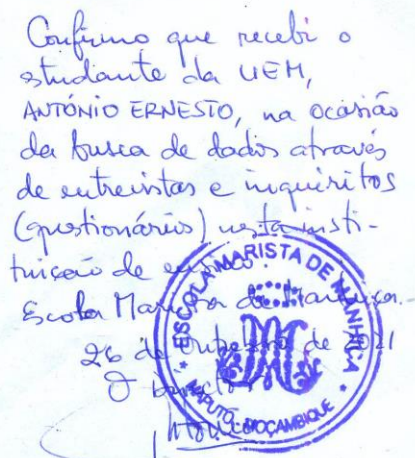 Confirmo que recebi o
estudante da UEM,
ANTÓNIO ERNESTO, na ocasião
da busca de dados através
de entrevistas e inquiritos
(questionários) nesta insti-
tuição de ensino.
Escola Marista de Manhiça.
26 de de
O
ESCOLA MARISTA DE MANHIÇA
MAPUTO, MOÇAMBIQUE